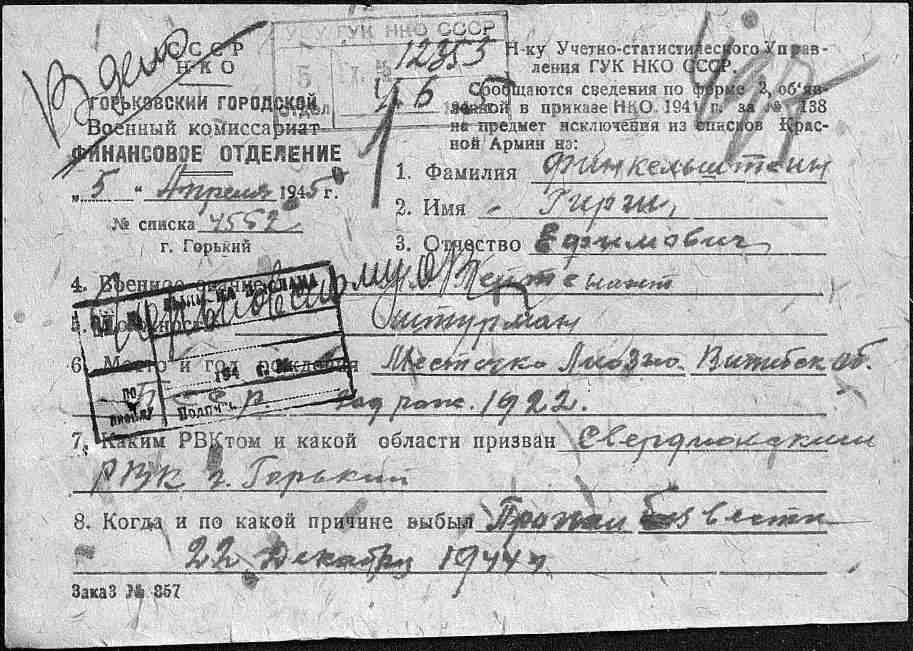 В дело
СССР
НКО
ГОРЬКОВСКИЙ ГОРОДСКОЙ
Военный комиссариат
ФИНАНСОВОЕ ОТДЕЛЕНИЕ
„ 5 “ Апреля 1945 г.
№ списка 4552
г. Горький
УСУ ГУК НКО СССР
12353
5
16
Отдел
Н-ку Учетно-статистического Управ-
ления ГУК НКО СССР.
Сообщаются сведения по форме 2, объ‘яв-
ленной в приказе НКО. 1941 г. за № 138
на предмет исключения из списков Крас-
ной Армии из:
1. Фамилия Финкельштейн
2. Имя Гирш
3. Отчество Ефимович
4. Военное звание Лейтенант
5. Должность Штурман
6. Место и год рождения Местечко Лиозно Витебск об.
Б С С Р год рож. 1922.
194 г.
Подпись
7. Каким РВКтом и какой области призван Свердловским
РВК г. Горький
8. Когда и по какой причине выбыл Пропал без вести
22 Декабря 1944 г
Заказ № 857